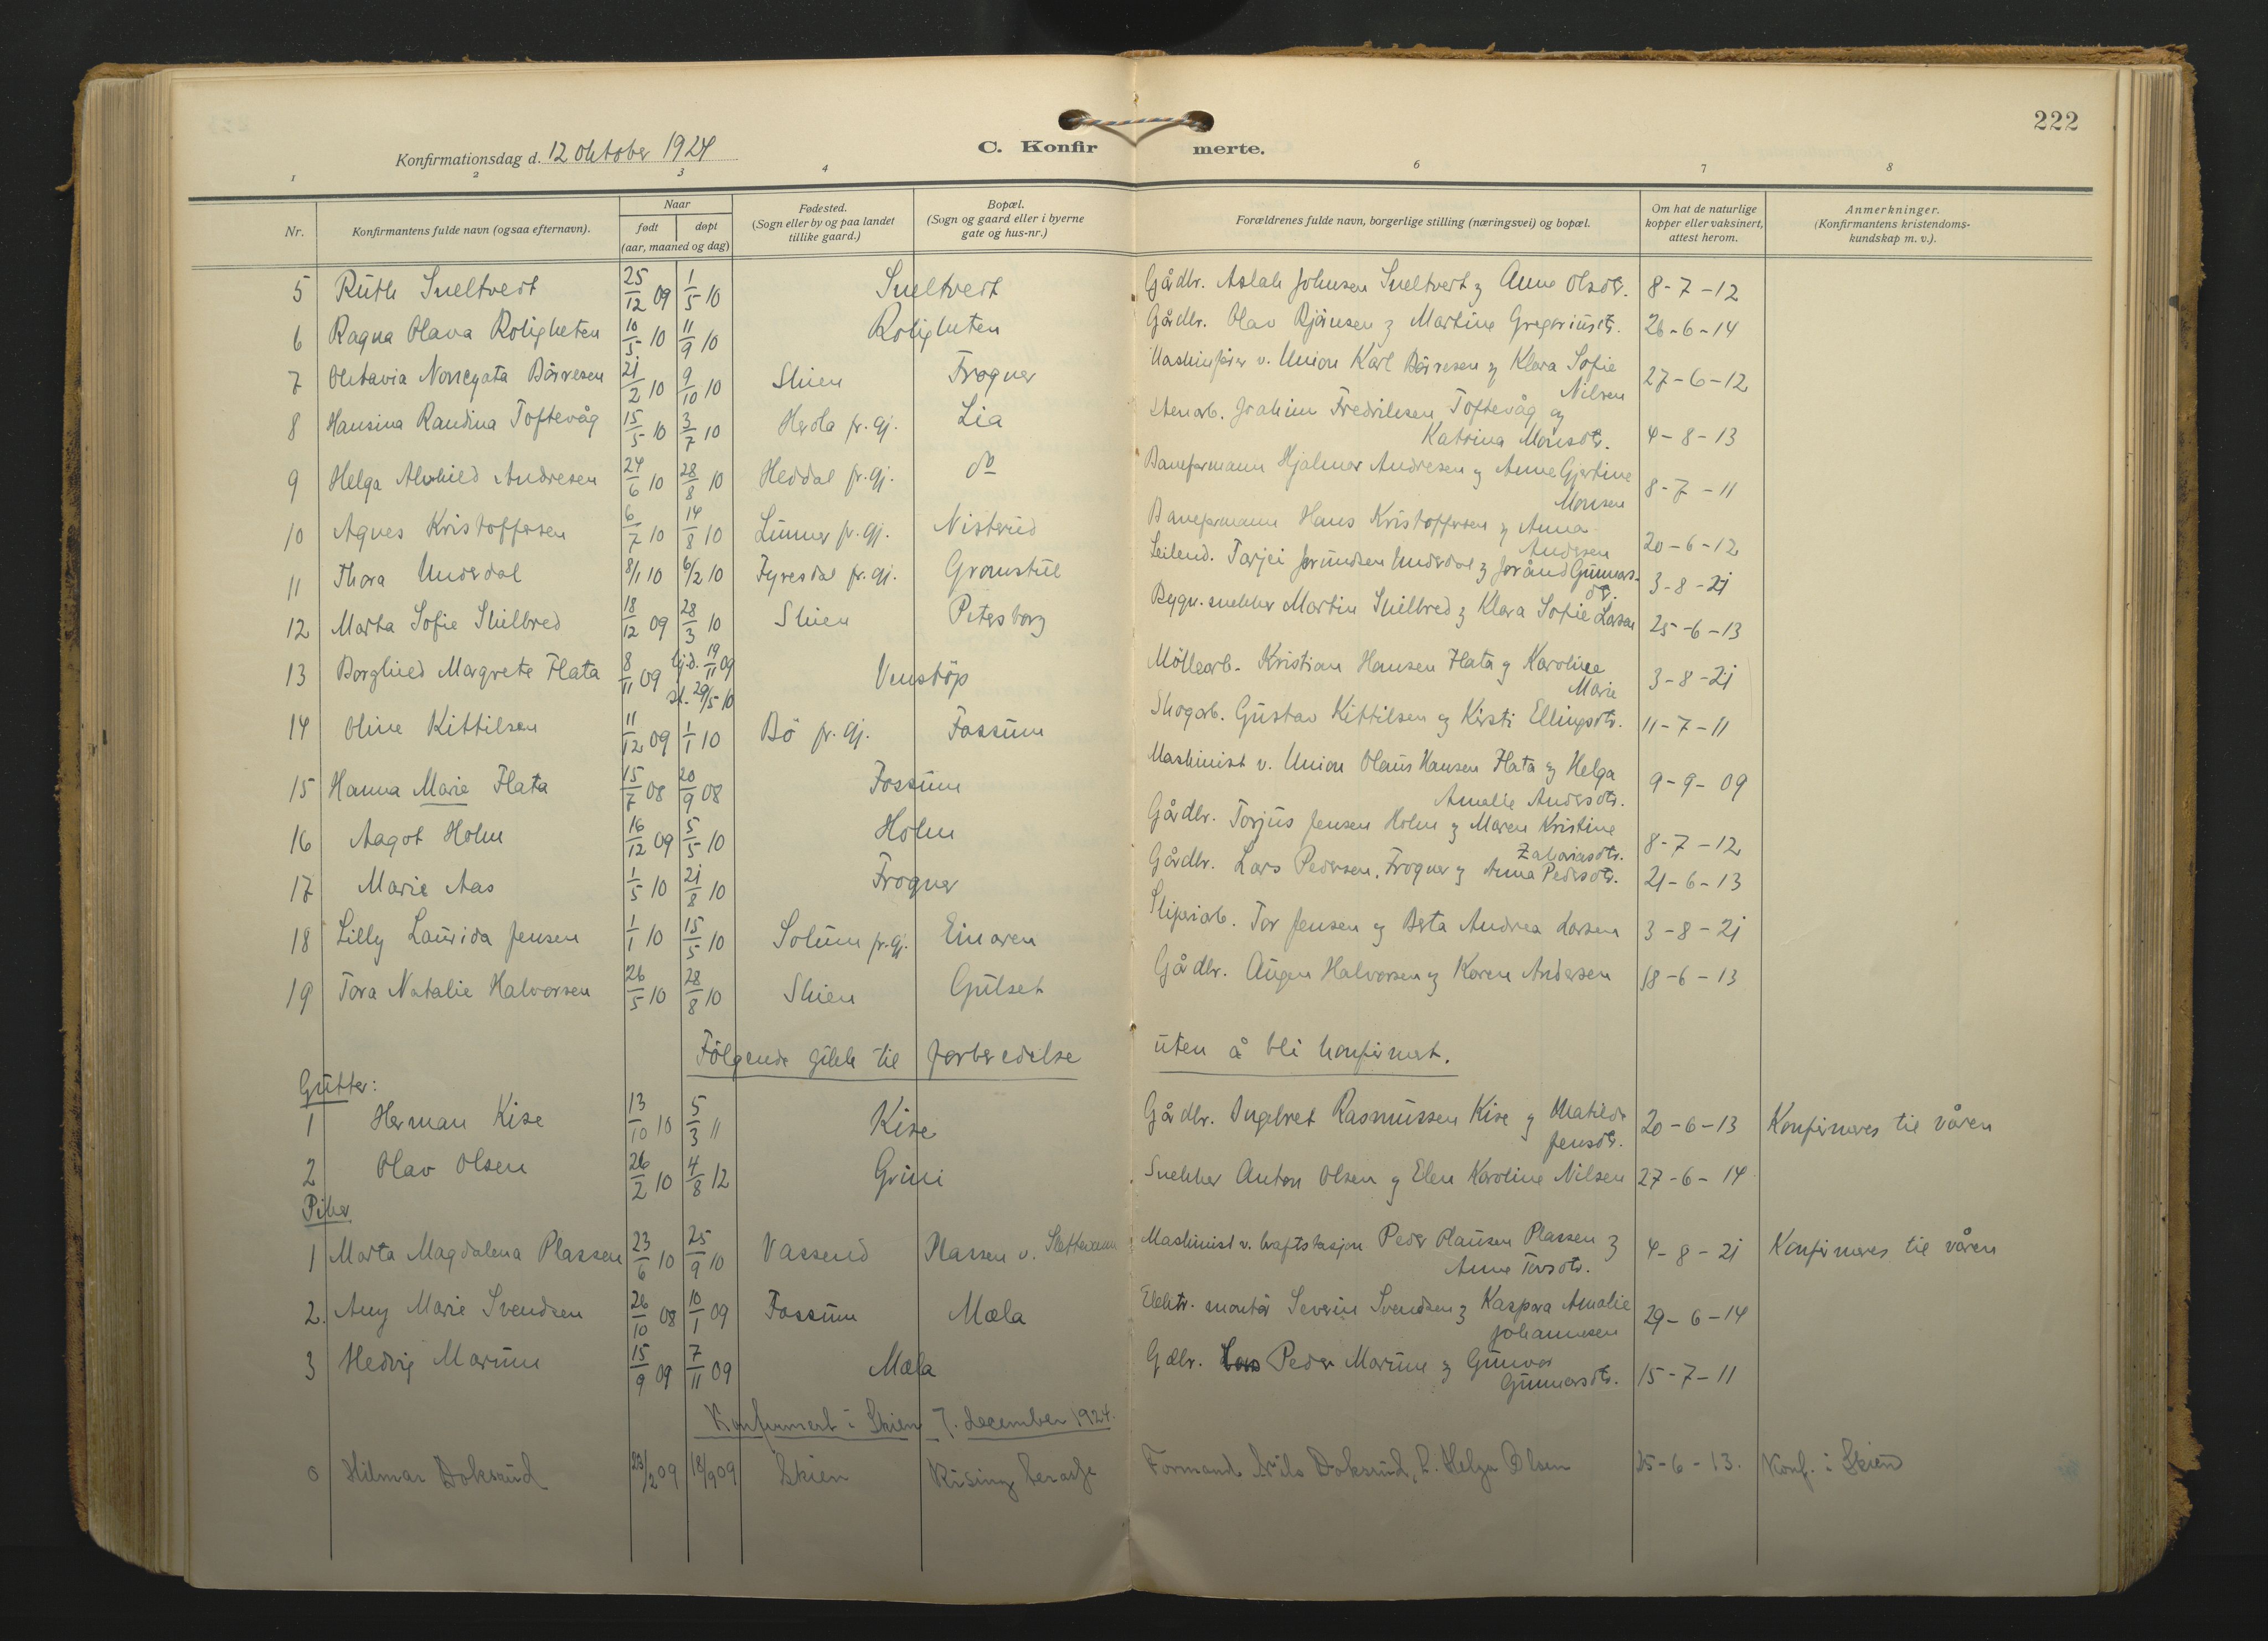 222
Konfirmationsdag d. 12 Oktober 1924
C. Konfirmerte.
1 2 3 4 6 7 8
Nr.
Konfirmantens fulde navn (ogsaa efternavn).
Naar
født døpt
(aar, maaned og dag)
Fødested.
(Sogn eller by og paa landet
tillike gaard.)
Bopæl.
(Sogn og gaard eller i byerne
gate og hus-nr.)
Forældrenes fulde navn, borgerlige stilling (næringsvei) og bopæl.
Om hat de naturlige
kopper eller vaksinert,
attest herom.
Anmerkninger.
(Konfirmantens kristendoms-
kundskap m. v.).
5 Ruth Sneltvedt 25/12 09 1/5 10 Sneltvedt Gårdbr. Aslak Johnsen Sneltvedt og Anne Olsdtr. 8-7-12
6 Ragna Olava Roligheten 10/5 10 11/9 10 Roligheten Gårdbr. Olav Björnsen og Martine Gregoriusdtr. 26-6-14
7 Oktavia Norregata Börresen 21/2 10 9/10 10 Skien Frogner Maskinfører v. Union Karl Börresen og Klara Sofie
Nilsen 27-6-12
8 Hansina Randina Toftevåg 15/5 10 3/7 10 Heröla pr.gj. Lia Stenarb. Joakim Fredriksen Toftevåg og
Katrina Monsdtr. 4-8-13
9 Helga Alvhild Andresen 24/6 10 28/8 10 Heddal pr.gj. do Baneformann Hjalmar Andresen og Anne Gjertine
Monsen 8-7-11
10 Agnes Kristoffersen 6/7 10 14/8 10 Lunner pr.gj. Nisterud Baneformann Hans Kristoffersen og Anna
Andersen 20-6-12
11 Thora Underdal 8/1 10 6/2 10 Fyresdal pr.gj. Gromstul Leilend. Tarjei Jørundsen Underdal og Jorånd Gunnars-
dtr. 3-8-21
12 Marta Sofie Skilbred 18/12 09 28/3 10 Skien Petersborg Bygn.snekker Martin Skilbred og Klara Sofie Larsen 25-6-13
13 Borghild Margrete Flata 8/11 09 hj.d. 19/11 09
st. 29/5 10 Venstöp Möllearb. Kristian Hansen Flata og Karoline
Marie 3-8-21
14 Oline Kittilsen 11/12 09 1/1 10 Bö pr.gj. Fossum Skogarb. Gustav Kittilsen og Kirsti Ellingsdtr. 11-7-11
15 Hanna Marie Flata 15/7 08 20/9 08 Fossum Maskinist v. Union Olaus Hansen Flata og Helga
Amalie Andersdtr. 9-9-09
16 Aagot Holm 16/12 09 5/5 10 Holm Gårdbr. Torjus Jensen Holm og Maren Kristine
Zakariasdtr. 8-7-12
17 Marie Aas 1/5 10 21/8 10 Frogner Gårdbr. Lars Pedersen, Frogner og Anna Pedersdtr. 21-6-13
18 Lilly Laurida Jensen 1/1 10 15/5 10 Solum pr.gj. Einaren Sliperiarb. Tor Jensen og Berta Andrea Larsen 3-8-21
19 Tora Natalie Halvorsen 26/5 10 28/8 10 Skien Gulset Gårdbr. Augen Halvorsen og Karen Andersen 18-6-13
Fölgende gikk til forberedelse uten å bli konfirmert.
Gutter:
1 Herman Kise 13/10 10 5/3 11 Kise Gårdbr. Ingebret Rasmussen Kise og Matilde
Jensdtr. 20-6-13 Konfirmeres til våren
2 Olav Olsen 26/2 10 4/8 12 Grini Snekker Anton Olsen og Elen Karoline Nilsen 27-6-14
Piker
1 Marta Magdalena Plassen 23/6 10 25/9 10 Vassend Plassen v. Slettevann Maskinist v. kraftstasjon Peder Olausen Plassen og
Anne Torsdtr. 4-8-21 Konfirmeres til våren
2. Any Marie Svendsen 26/10 08 10/1 09 Fossum Mæla Elektr. montör Severin Svendsen og Kaspara Amalie
Johannesen 29-6-14
3 Hedvig Marum 15/9 09 7/11 09 Mæla Gdbr. Peder Marum og Gunvor
Gunnarsdtr. 15-7-11
Konfirmert i Skien 7. december 1924.
0 Hilmar Doksrud 23/2 09 18/9 09 Skien Rising terasse Formand Nils Doksrud, h. Helga Olsen 25-6-13. Konf. i Skien